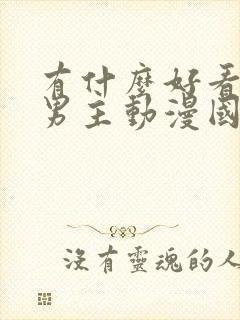 有什麼好看
男主動漫國
沒有靈魂的人